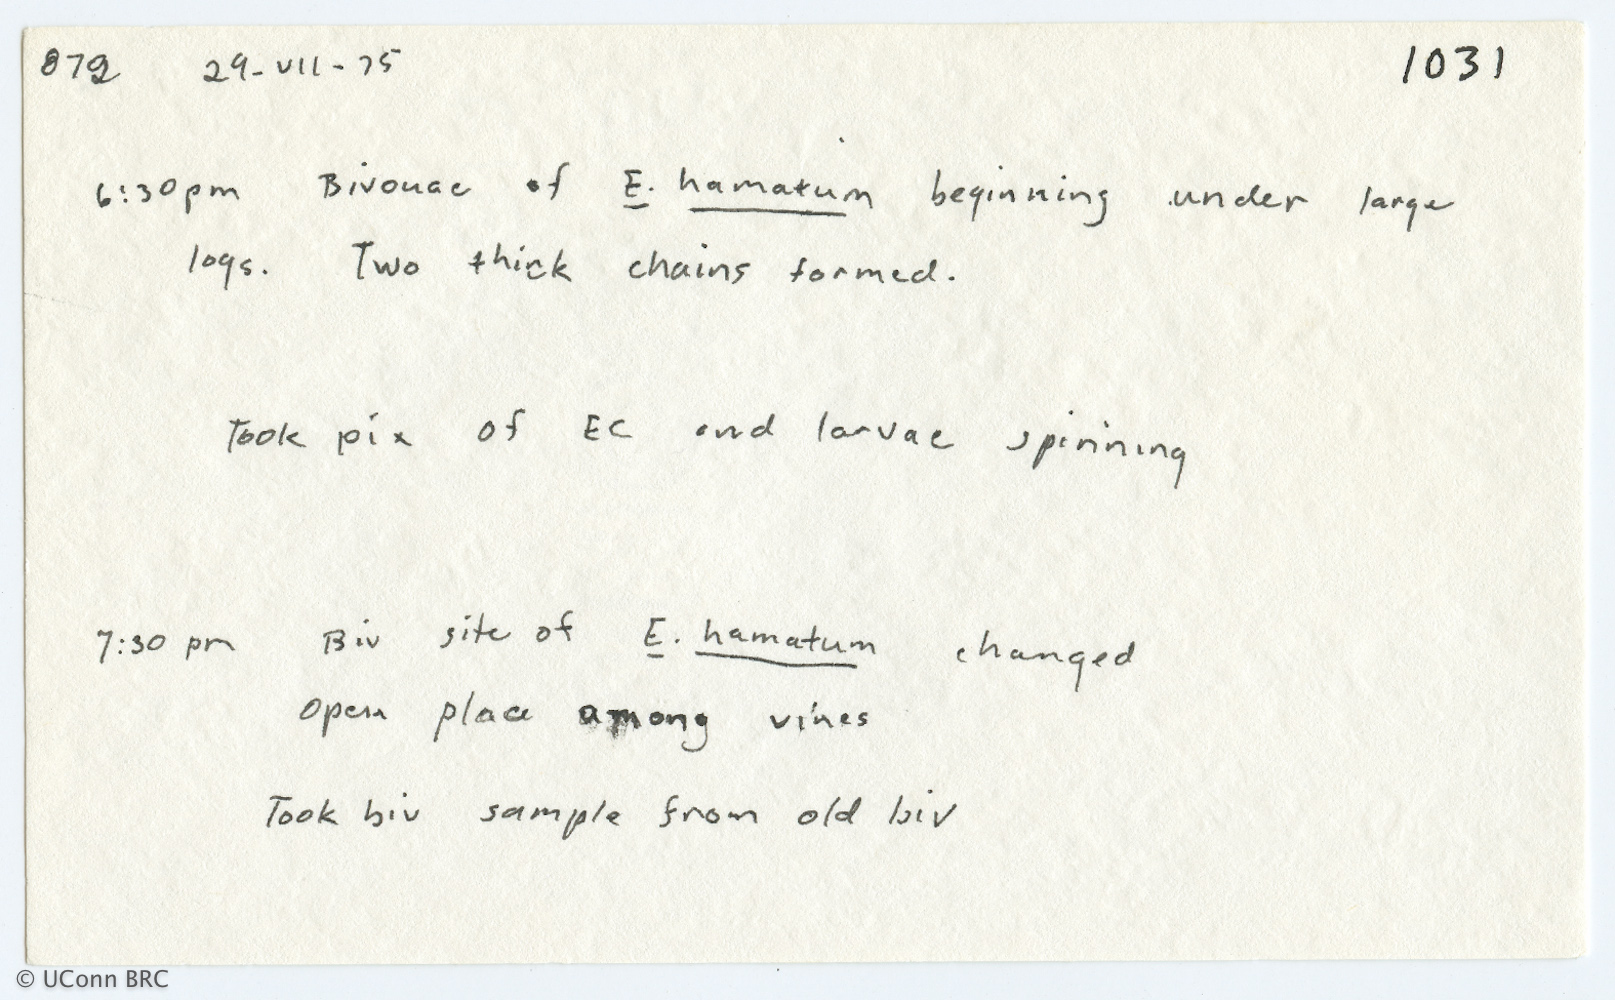 872 29-VII-75 1031
6:30pm Bivouac of E. hamatum beginning under large
logs. Two thick chains formed.
Took pix of EC and larvae spinning
7:30 pm Biv site of E. hamatum changed
open place among vines
Took biv sample from old biv
© UConn BRC